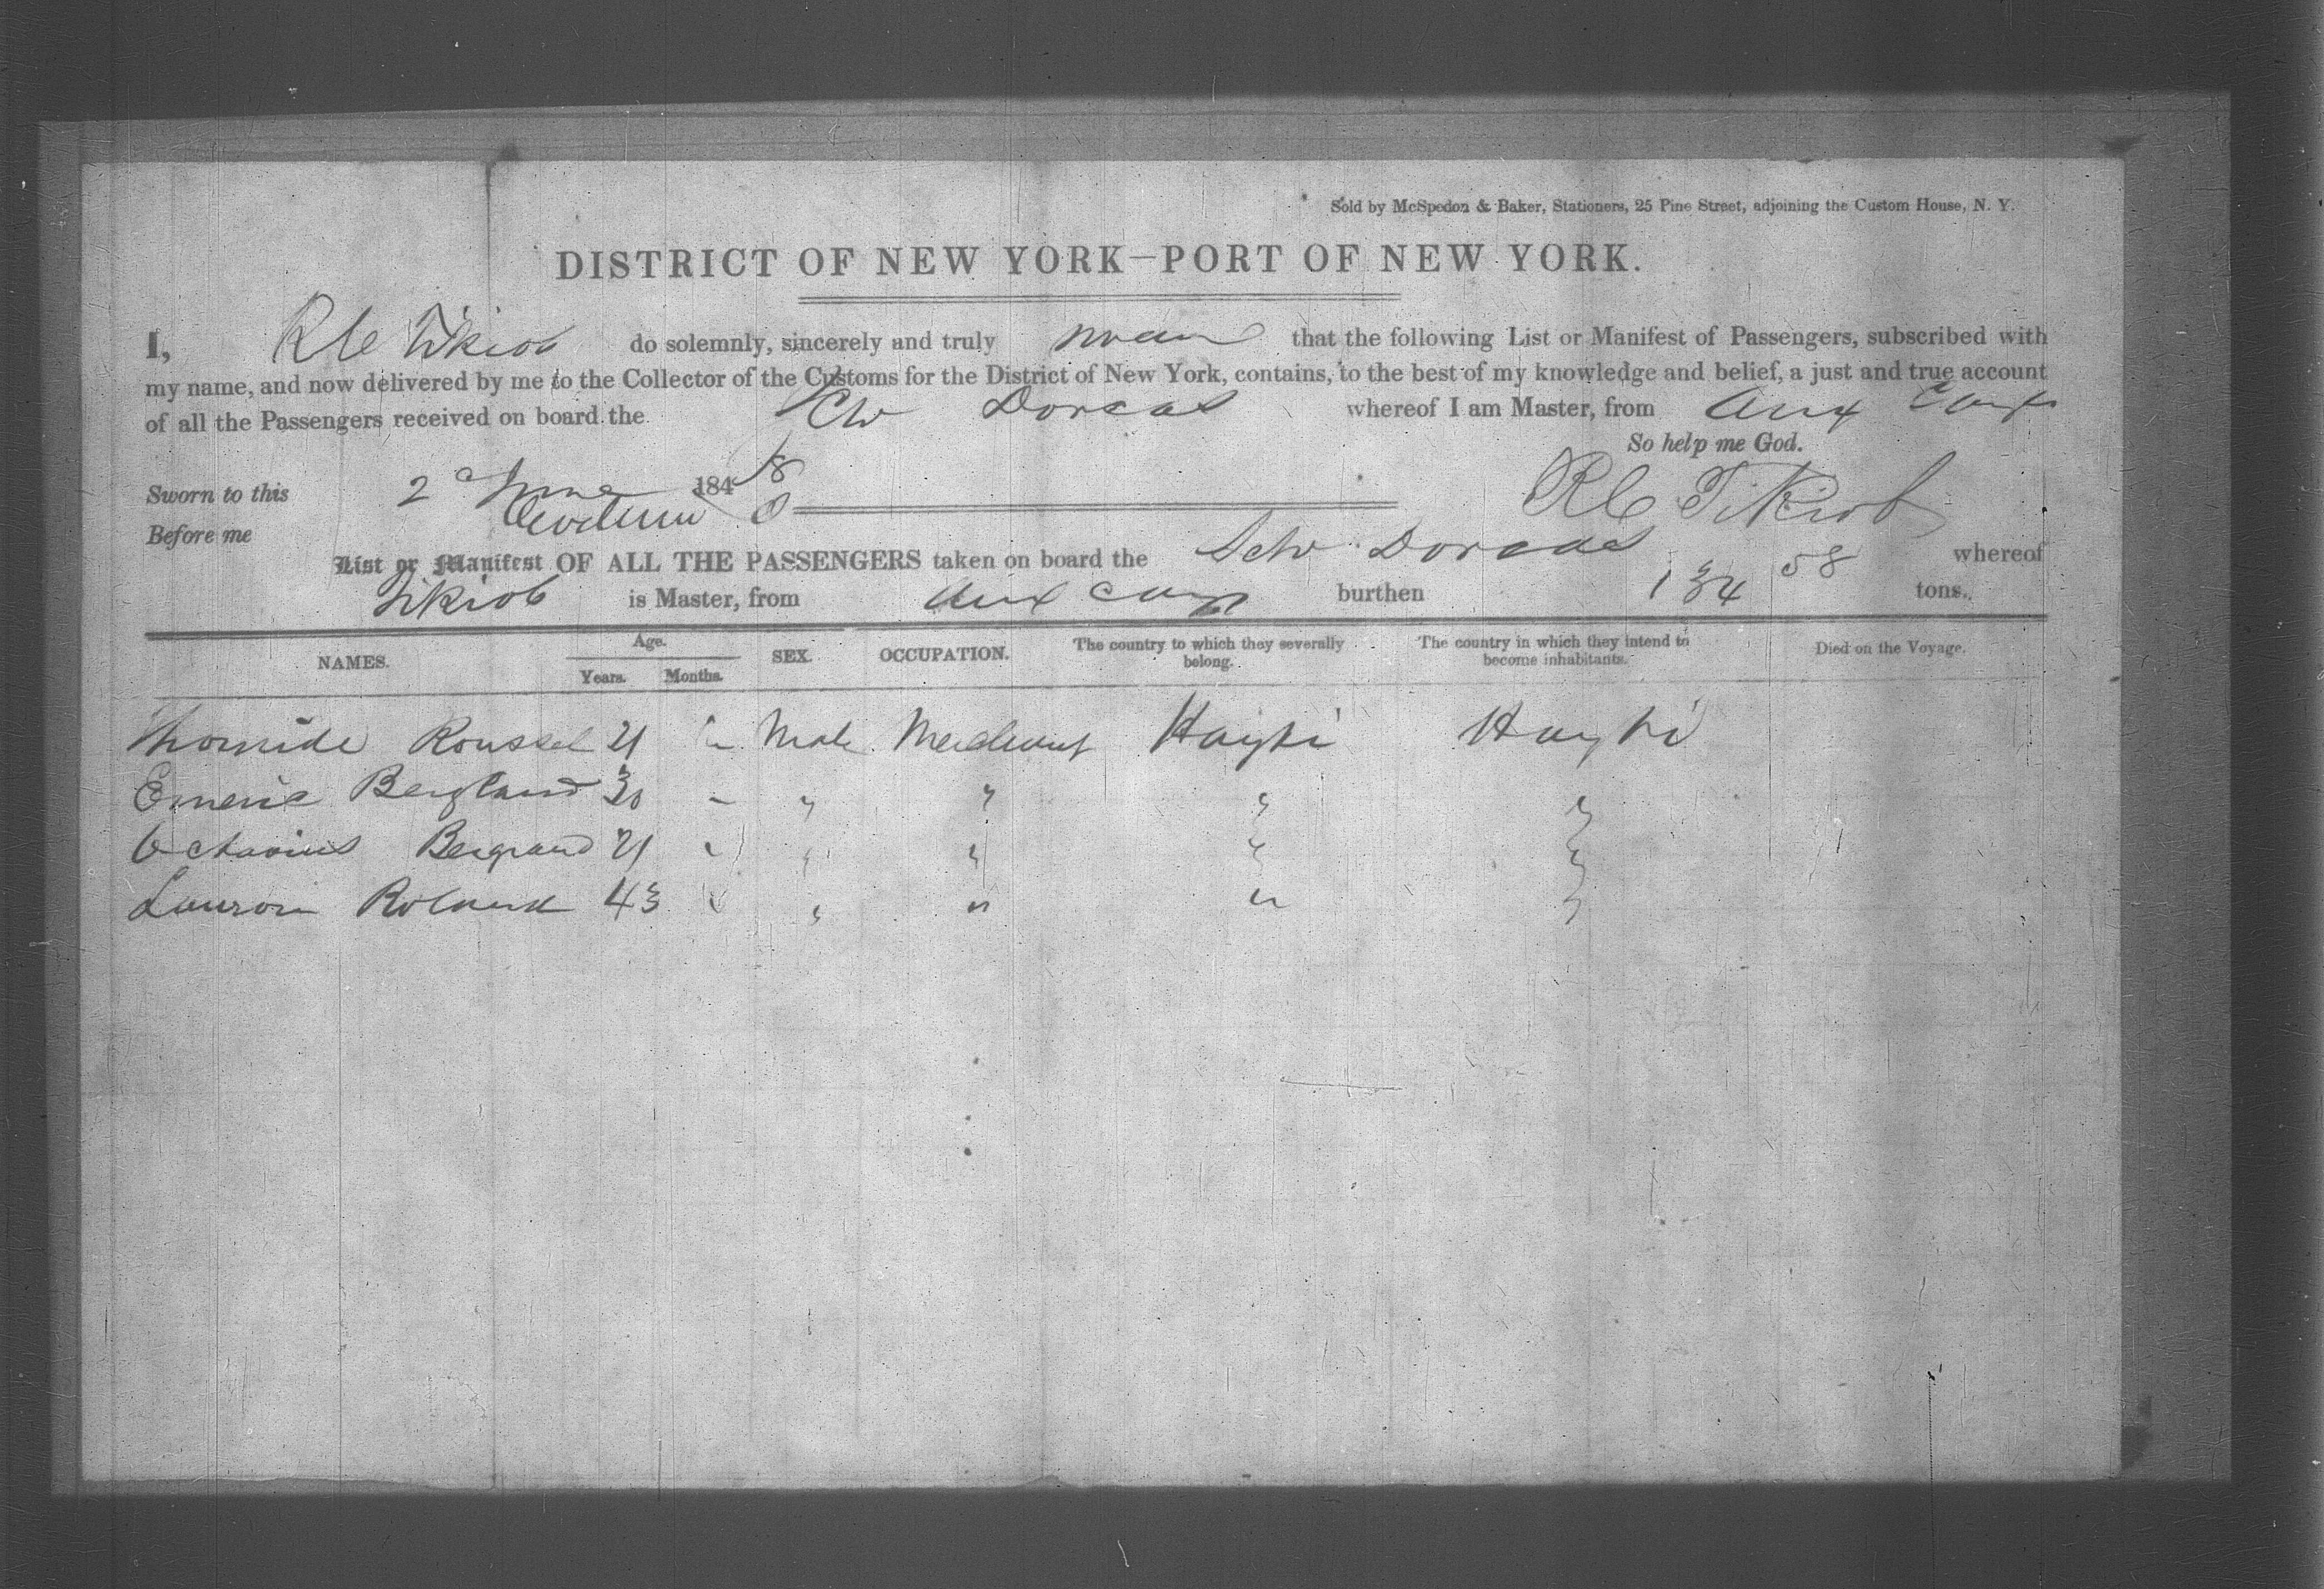 Sold by McSpedon & Baker, Stationers, 25 Pine Street, adjoining the Custom House, N. Y.
DISTRICT OF NEW YORK—PORT OF NEW YORK.
I, do solemnly, sincerely and truly swear that the following List or Manifest of Passengers, subscribed with
my name, and now delivered by me to the Collector of the Customs for the District of New York, contains, to the best of my knowledge and belief, a just and true account
of all the Passengers received on board the Schr Dorcas whereof I am Master, from Aux Cayes
So help me God.
Sworn to this 2d June 1848
Before me
List or Manifest OF ALL THE PASSENGERS taken on board the Schr Dorcas whereof
is Master, from Aux Cayes burthen 134 58 tons.
NAMES. Age. Years. Months. SEX. OCCUPATION. The country to which they severally belong. The country in which they intend to become inhabitants. Died on the Voyage.
Roussel 21 " Male Merchant Hayti Hayti
Emeric 30 - " " " "
Octavius Bergrand 21 " " " " "
43 " " " " "